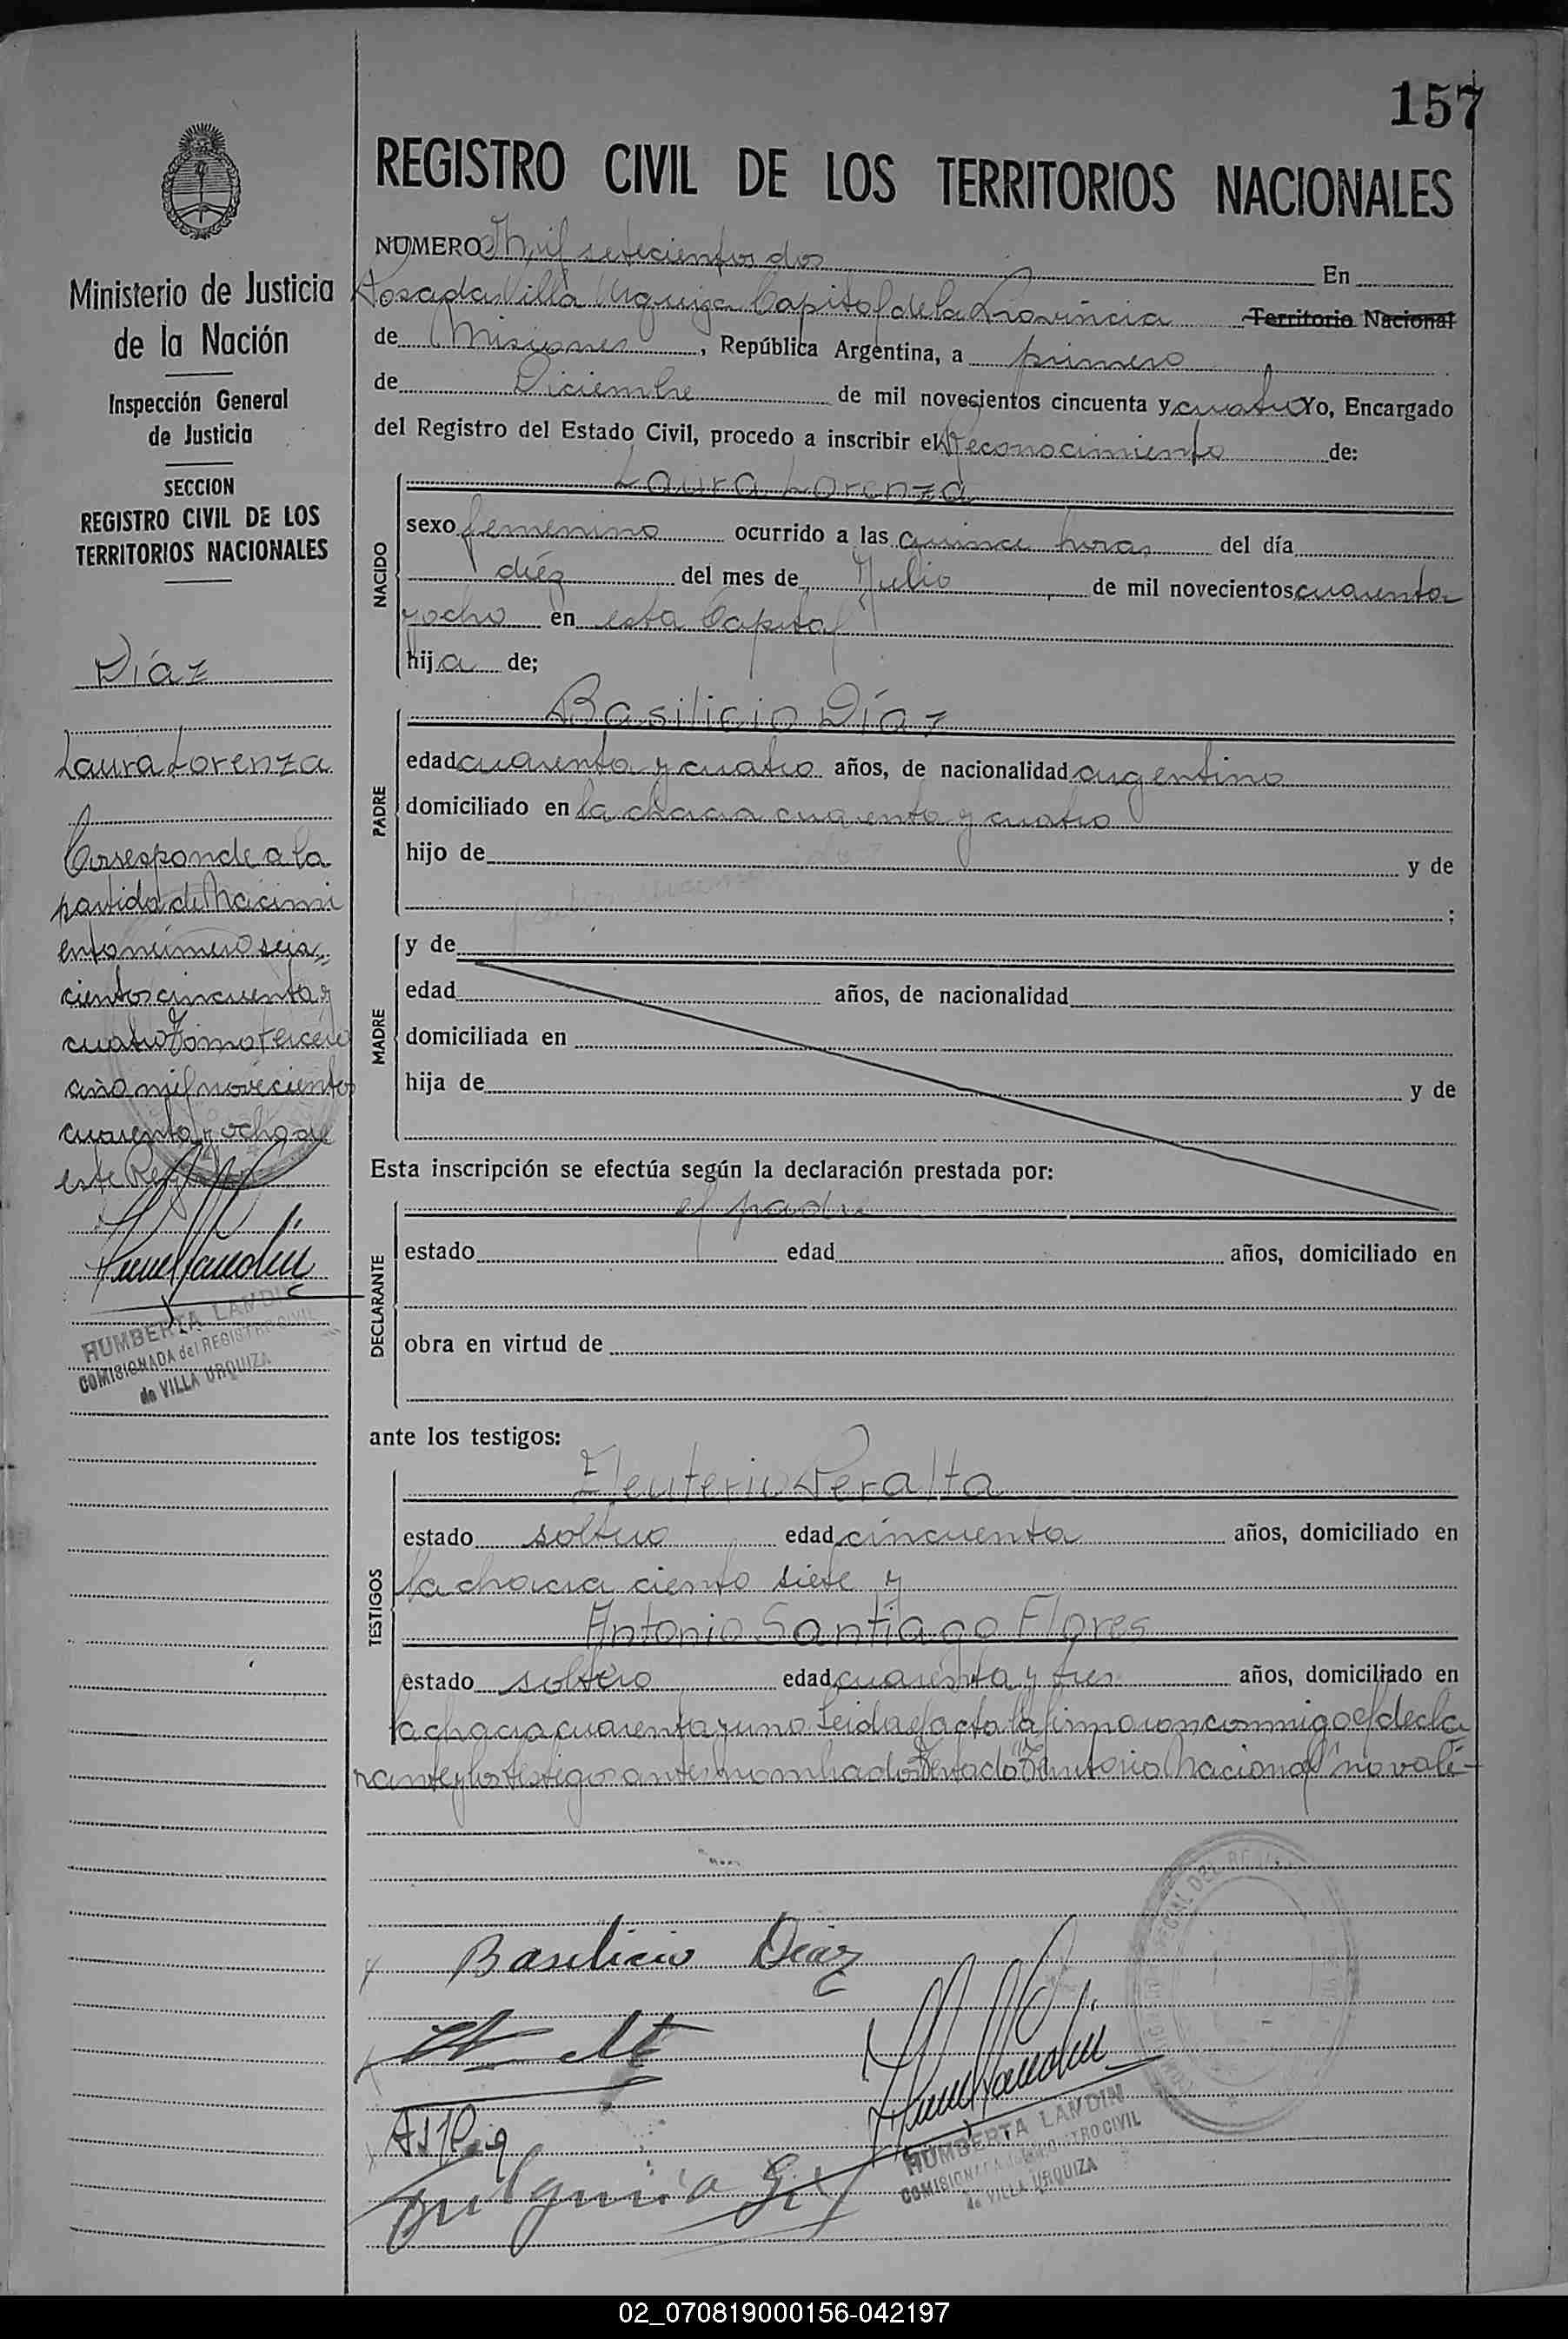 157
REGISTRO CIVIL DE LOS TERRITORIOS NACIONALES
Ministerio de Justicia
de la Nación
Inspección General
de Justicia
SECCION
REGISTRO CIVIL DE LOS
TERRITORIOS NACIONALES
Díaz
Laura Lorenza
Corresponde a la
partida de Nacimi
ento número seis
cientos cincuenta y
cuatro Tomo tercero
año mil novecientos
cuarenta y ocho de
este
HUMBERTA LANDIN
COMISIONADA del REGISTRO CIVIL
de VILLA URQUIZA
NUMERO Mil setecientos dos En
Posadas Villa Urquiza Capital de la Provincia Territorio Nacional
de Misiones, República Argentina, a primero
de Diciembre de mil novecientos cincuenta y cuatro Yo, Encargado
del Registro del Estado Civil, procedo a inscribir el Reconocimiento de:
NACIDO
Laura Lorenza
sexo femenino ocurrido a las quince horas del día
diéz del mes de Julio de mil novecientos cuarenta
y ocho en esta Capital
hija de;
PADRE
Basilicio Díaz
edad cuarenta y cuatro años, de nacionalidad argentino
domiciliado en la chacra cuarenta y cuatro
hijo de y de
;
MADRE
y de
edad años, de nacionalidad
domiciliada en
hija de y de
Esta inscripción se efectúa según la declaración prestada por:
DECLARANTE
el padre
estado edad años, domiciliado en
obra en virtud de
ante los testigos:
TESTIGOS
Eleuterio Peralta
estado soltero edad cincuenta años, domiciliado en
la chacra ciento siete y
Antonio Santiago Flores
estado soltero edad cuarenta y tres años, domiciliado en
la chacra cuarenta y uno. Leida el acta la firma con conmigo el decla
rante y los testigos antes nombrados Testado "Territorio Nacional" no vale
Basilicio Diaz
HUMBERTA LANDIN
COMISIONADA del REGISTRO CIVIL
de VILLA URQUIZA
02_070819000156-042197